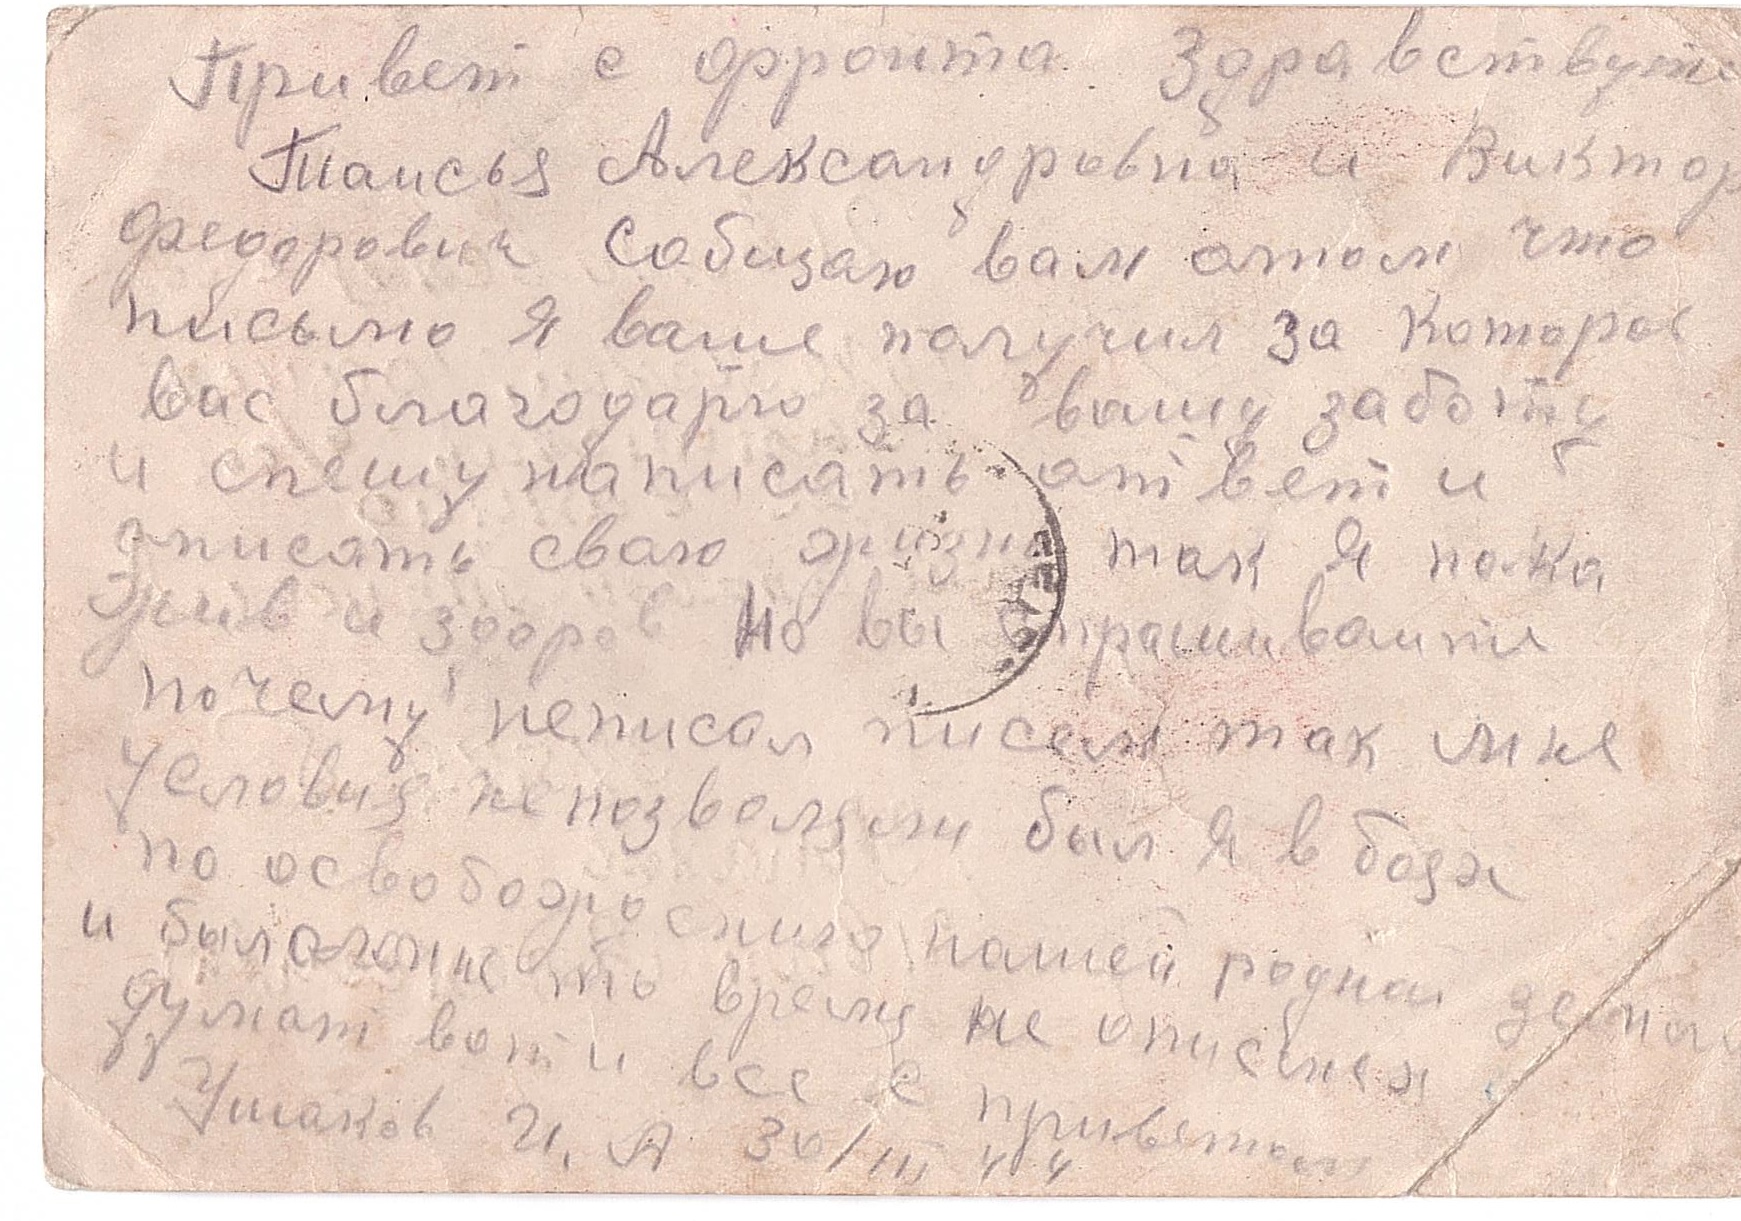 Привет с фронта. Здравствуйте
Таисья Александровна и Виктор
Федорович Собщаю вам отом что
письмо я ваше получил за которое
вас благодарю за вашу заботу
и спешу написать ответ и
описать сваю жизнь так я пока
жив и здоров Но вы спрашиваите
почему неписал писем так мне
Условия непозволяли был я в боях
по освобождению нашей родной
и было время не
думат вот и все с приветом
Ушаков И. А 30/III 44